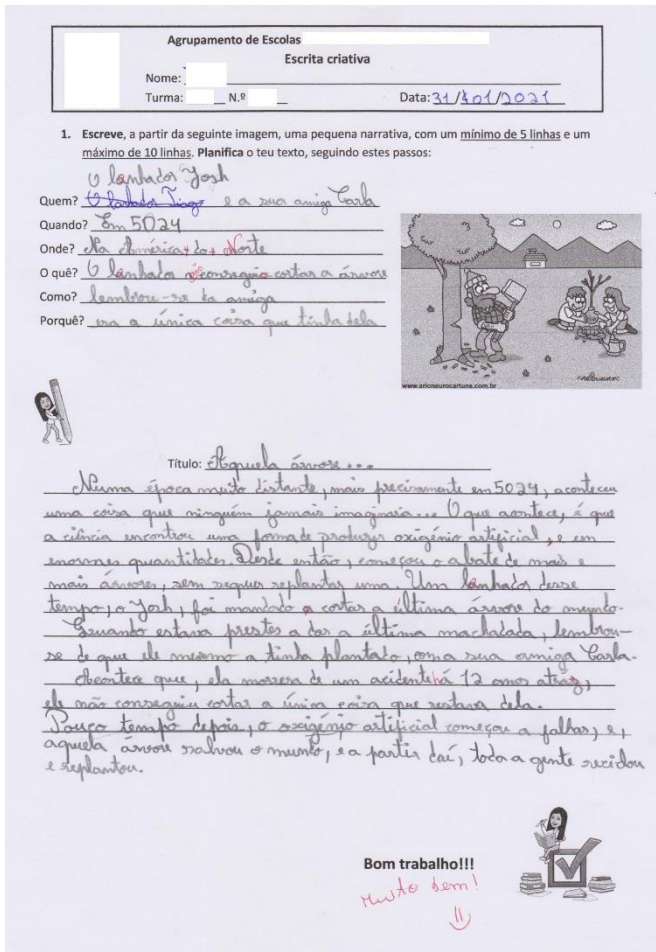 Agrupamento de Escolas
Escrita criativa
Nome:
Turma: N.º Data: 31/01/2021
1. Escreve, a partir da seguinte imagem, uma pequena narrativa, com um mínimo de 5 linhas e um
máximo de 10 linhas. Planifica o teu texto, seguindo estes passos:
O lenhador Josh
Quem? O lenhador Tiago e a sua amiga Carla
Quando? Em 5024
Onde? Na América do Norte
O quê? O lenhador não conseguia cortar a árvore
Como? lembrou-se da amiga
Porquê? era a única coisa que tinha dela
www.arionaurocartuns.com.br
Título: Aquela árvore...
Numa época muito distante, mais precisamente em 5024, aconteceu
uma coisa que ninguém jamais imaginaria... O que acontece, é que
a ciência encontrou uma forma de produzir oxigénio artificial, e em
enormes quantidades. Desde então, começou o abate de mais e
mais árvores, sem sequer replantar uma. Um lenhador desse
tempo, o Josh, foi mandado a cortar a última árvore do mundo.
Quando estava prestes a dar a última machadada, lembrou-
se de que ele mesmo a tinha plantado, com a sua amiga Carla.
Acontece que, ela morrera de um acidente há 12 anos atrás,
ele não conseguiu cortar a única coisa que restava dela.
Pouco tempo depois, o oxigénio artificial começou a falhar, e,
aquela árvore salvou o mundo, e a partir daí, toda a gente
e replantou.
Bom trabalho!!!
Muito bem!